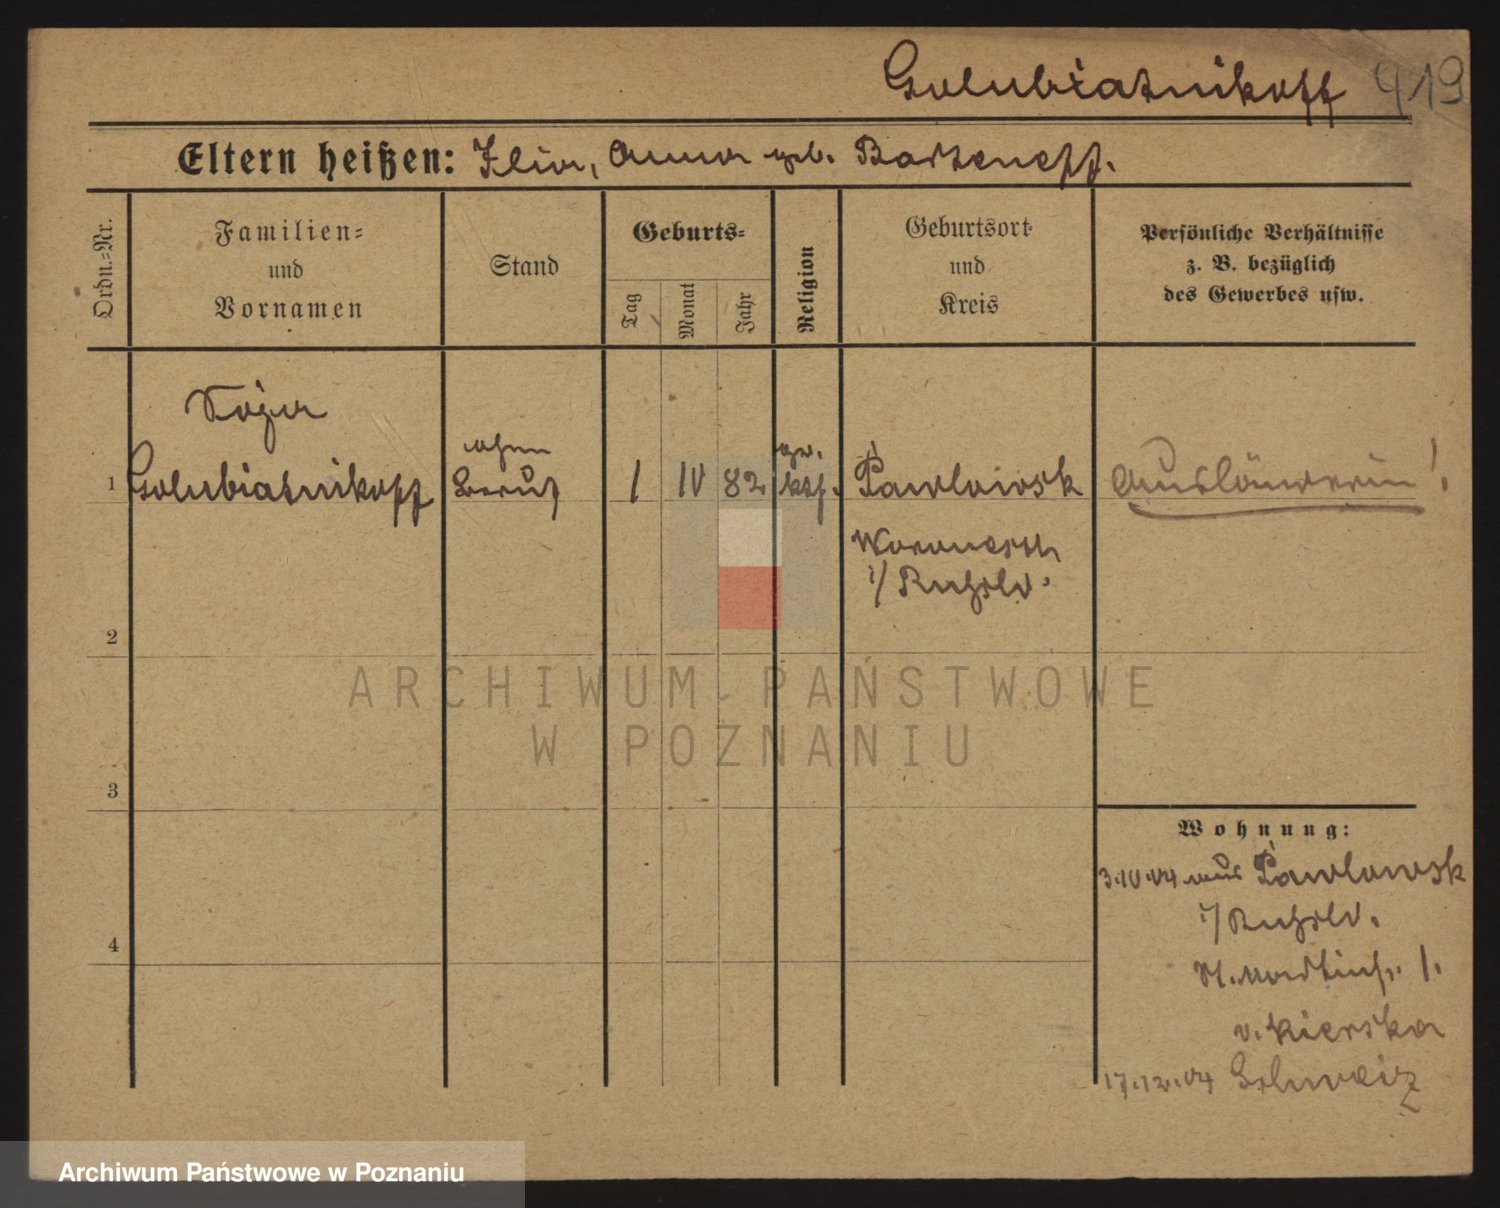 Golubiatnikoff 919
Eltern heißen: Ilia, Anna geb. Barteneff.
Ordn.=Nr.
Familien=
und
Vornamen
Stand
Geburts=
Tag
Monat
Jahr
Religion
Geburtsort
und
Kreis
Persönliche Verhältnisse
z. B. bezüglich
des Gewerbes usw.
1
Golubiatnikoff
ohne
Beruf
1 IV 82
gr.
kth.
Pawlowsk
Woronesch
i/ Rußld.
Ausländerin!
2
3
4
ARCHIWUM PAŃSTWOWE
W POZNANIU
Wohnung:
3.10.04 aus Pawlowsk
i/ Rußld.
St. Martinstr. 1.
v. Kierska
17.12.04 Schweiz
Archiwum Państwowe w Poznaniu